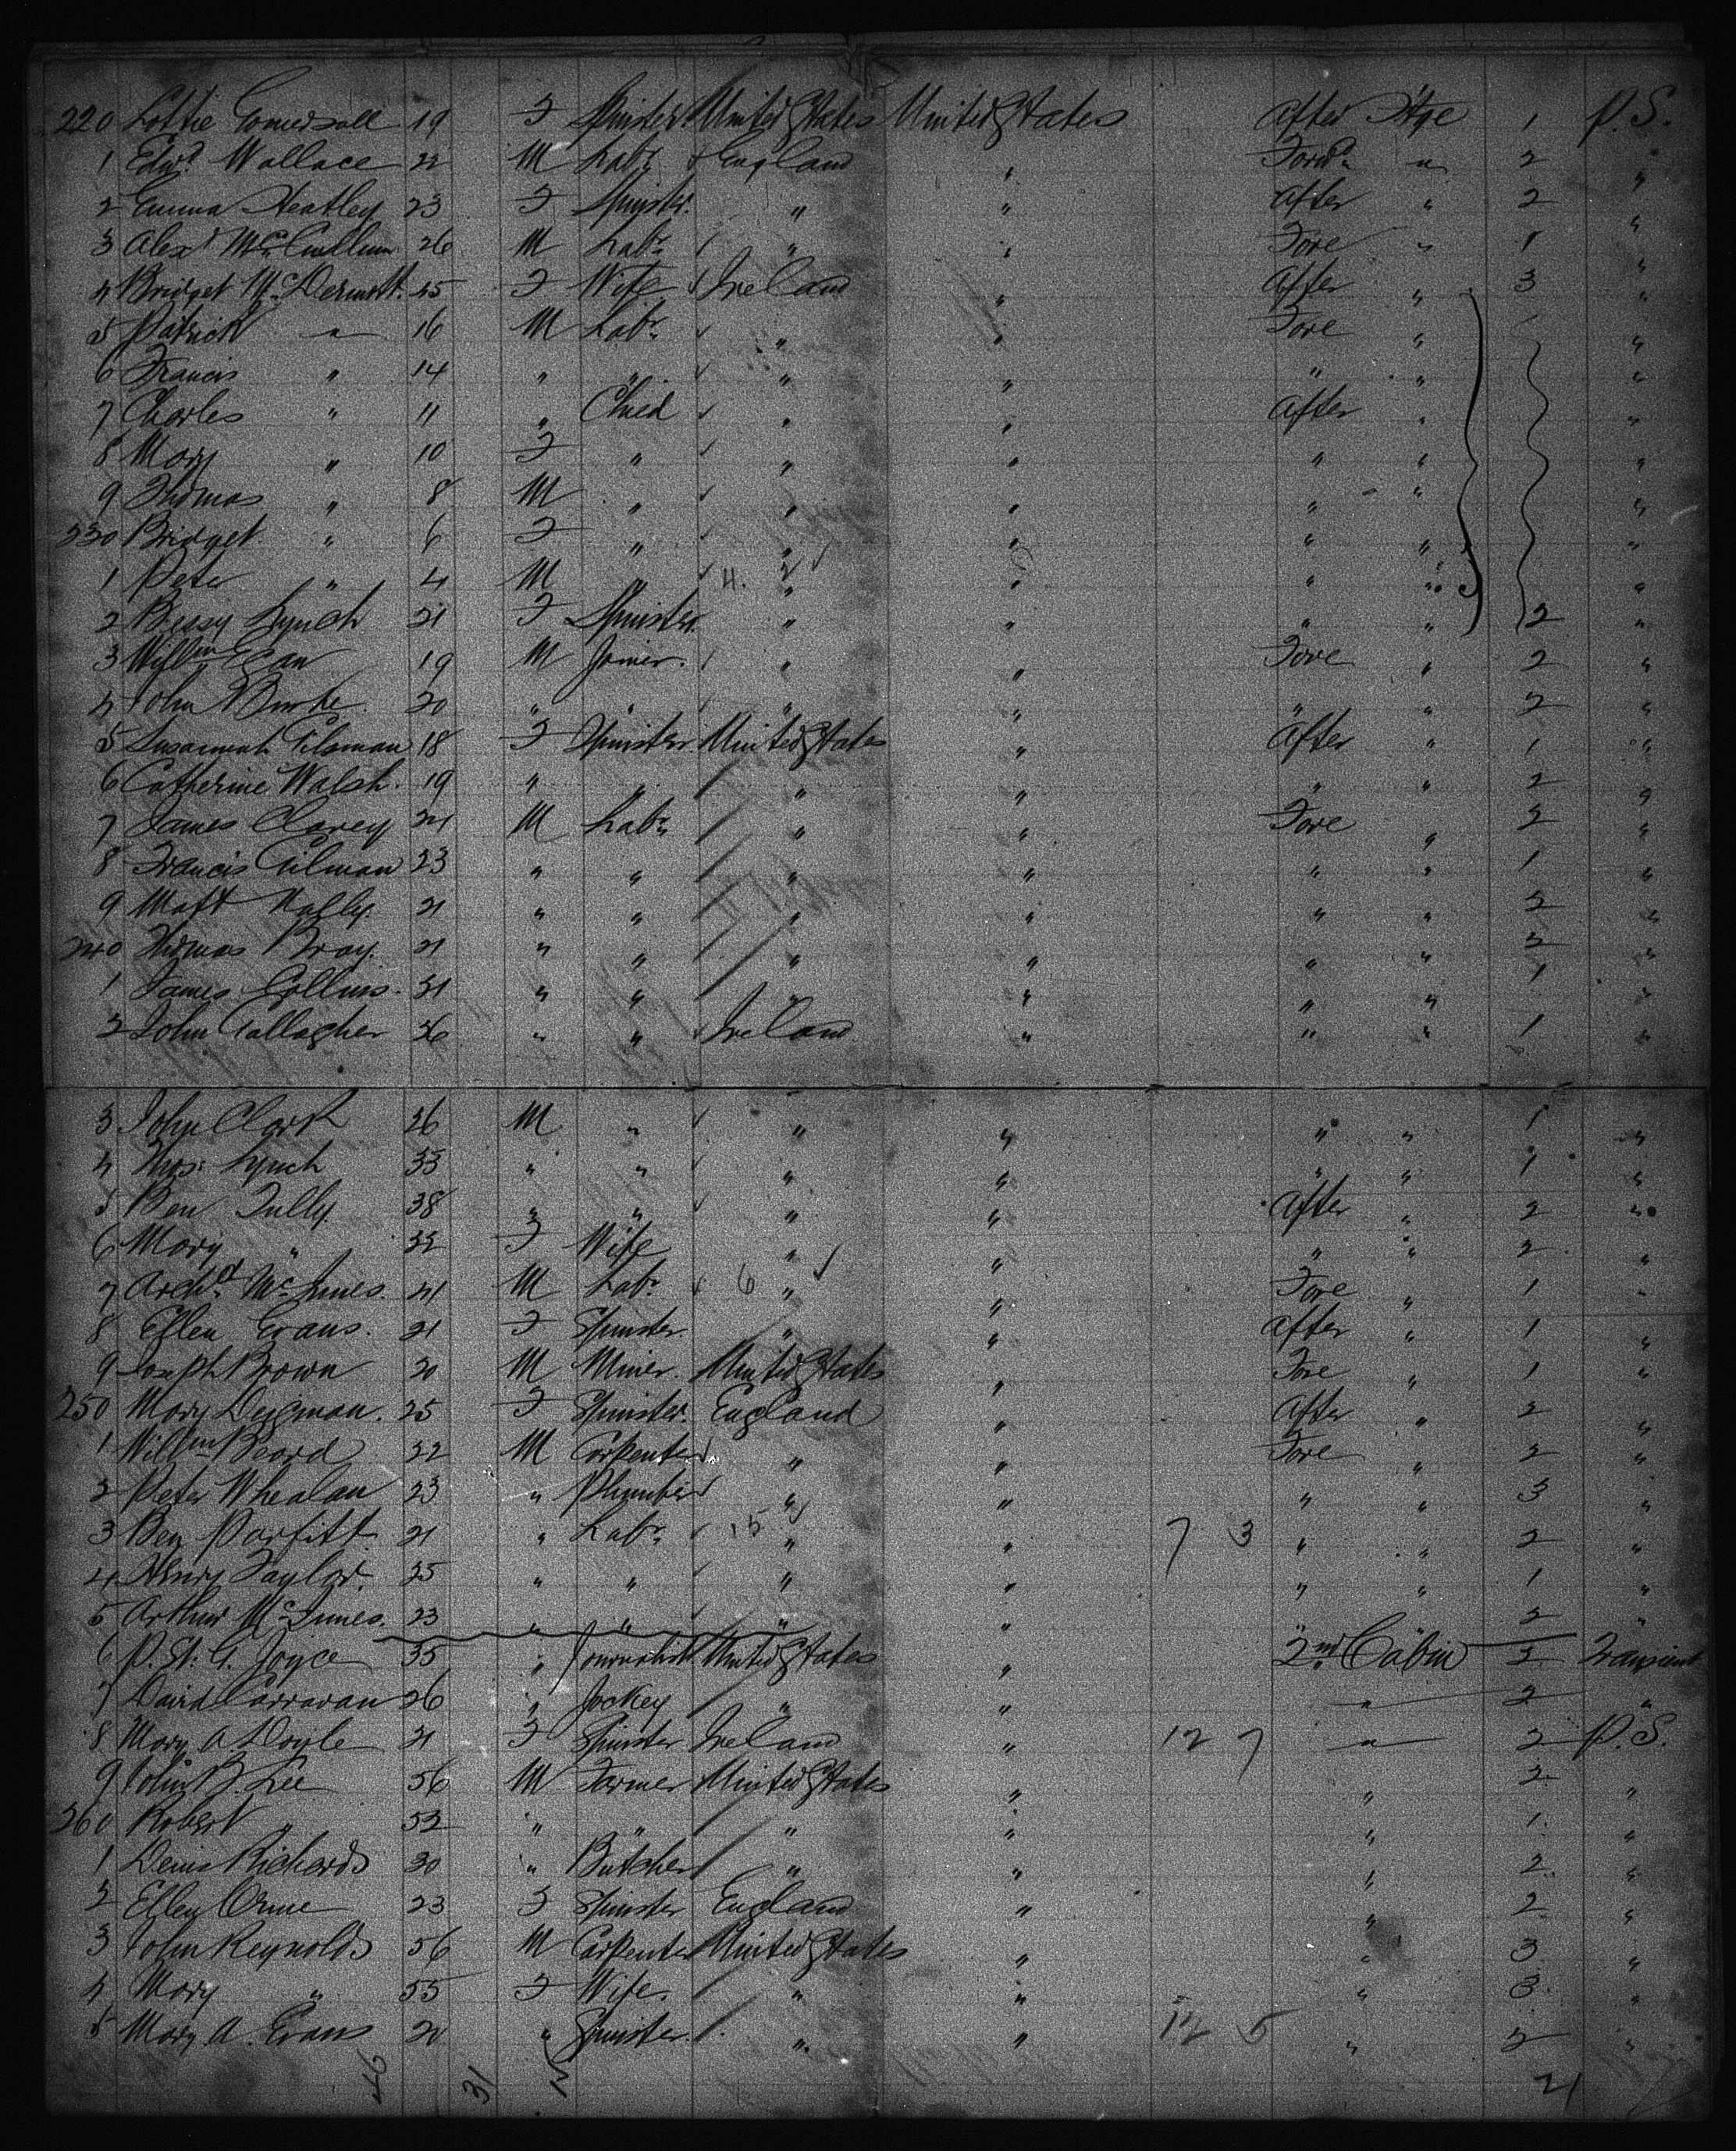 220 Lottie Gomersall 19 F Spinster United States United States After Stge 1 P.S.
1 Edwd Wallace 22 M Labr England " Forwd " 2 "
2 Emma Heatley 23 F Spinster " " After " 2 "
3 Alexr McCullum 26 M Labr " " Fore " 1 "
4 Bridget McDermott 45 F Wife Ireland " After " 3 "
5 Patrick " 16 M Labr " " Fore " "
6 Francis " 14 " " " " " " "
7 Charles " 11 " Child " " After " "
8 Mary " 10 F " " " " " "
9 Thomas " 8 M " " " " " "
230 Bridget " 6 F " " " " " "
1 Peter " 4 M " 4. 2 " " " " "
2 Bessy Lynch 21 F Spinster " " " " 2 "
3 Willm Egan 19 M Joiner " " Fore " 2 "
4 John Burke 20 " " " " " " 2 "
5 Susannah Gilsman 18 F Spinster United States " After " 1 "
6 Catherine Walsh 19 " " " " " " 2 "
7 James Clarey 24 M Labr " " Fore " 2 "
8 Francis Gilman 23 " " " " " " 1 "
9 Matt Nally 21 " " " " " " 2 "
240 Thomas Bray 21 " " " " " " 2 "
1 James Collins 31 " " " " " " 1 "
2 John Gallagher 26 " " Ireland " " " 1 "
3 John Clark 26 M " " " " " 1 "
4 Thos Lynch 33 " " " " " " 1 "
5 Ben Tully 38 " " " " After " 2 "
6 Mary " 32 F Wife " " " " 2 "
7 Archd McInnes 21 M Labr 6 " " Fore " 1 "
8 Ellen Evans 21 F Spinster " " After " 1 "
9 Joseph Brown 20 M Miner United States " Fore " 1 "
250 Mary Deigman 25 F Spinster England " After " 2 "
1 Willm Beard 22 M Carpenter " " Fore " 2 "
2 Peter Whealan 23 " Plumber " " " " 3 "
3 Ben Parfitt 21 " Labr 15 " " 7 3 " " 2 "
4 Henry Taylor 25 " " " " " " 1 "
5 Arthur McInnes 23 " " " " " " 2 "
6 P. St. G. Joyce 35 " Journalist United States " 2nd Cabin 2 Transient
7 David Carravan 26 " Jockey " " " 2 "
8 Mary A. Doyle 21 F Spinster Ireland " 12 7 " 2 P.S.
9 John B. Lee 56 M Farmer United States " " 2 "
260 Robert " 52 " " " " " 1 "
1 Denis Richards 30 " Butcher " " " 2 "
2 Ellen Orme 23 F Spinster England " " 2 "
3 John Reynolds 56 M Carpenter United States " " 3 "
4 Mary " 55 F Wife " " " 3 "
5 Mary A. Evans 20 " Spinster " " 12 5 " 2 "
46 31 15 21